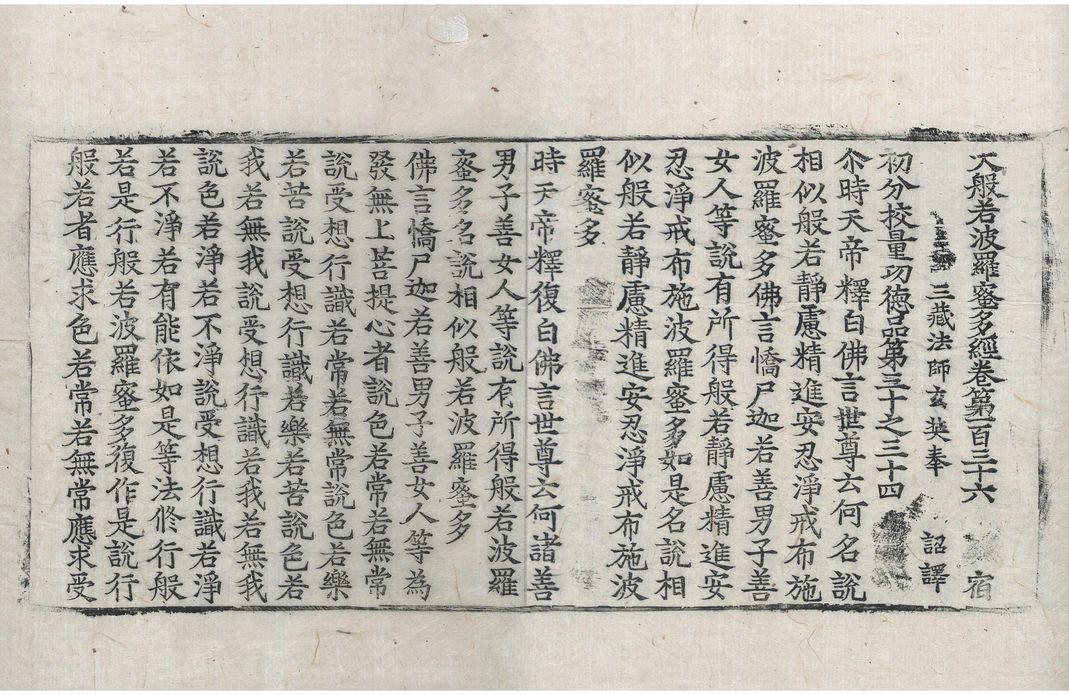 大般若波羅蜜多經卷第一百三十六 宿
三藏法師玄奘奉 詔譯
初分校量功德品第三十之三十四
尒時天帝釋白佛言世尊云何名說
相似般若靜慮精進安忍淨戒布施
波羅蜜多佛言憍尸迦若善男子善
女人等說有所得般若靜慮精進安
忍淨戒布施波羅蜜多如是名說相
似般若靜慮精進安忍淨戒布施波
羅蜜多
時天帝釋復白佛言世尊云何諸善
男子善女人等說有所得般若波羅
蜜多名說相似般若波羅蜜多
佛言憍尸迦若善男子善女人等為
發無上菩提心者說色若常若無常
說受想行識若常若無常說色若樂
若苦說受想行識若樂若苦說色若
我若無我說受想行識若我若無我
說色若淨若不淨說受想行識若淨
若不淨若有能依如是等法修行般
若是行般若波羅蜜多復作是說行
般若者應求色若常若無常應求受